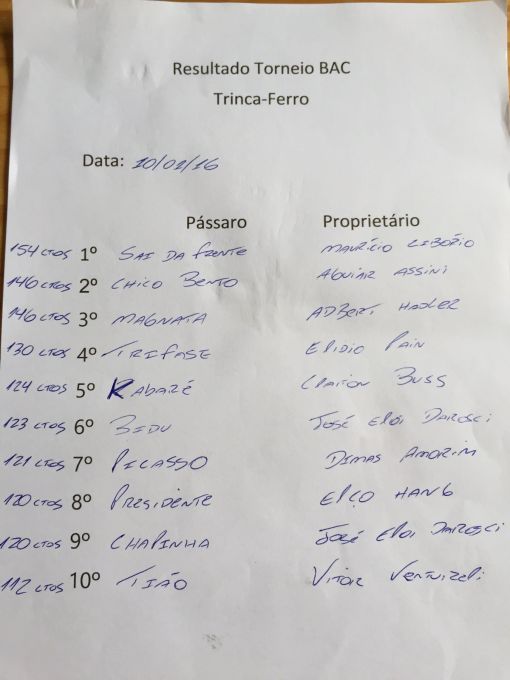 Resultado Torneio BAC
Trinca-Ferro
Data: 10/01/16
Pássaro Proprietário
154 CTOS 1º SAI DA FRENTE MAURÍCIO LIBÓRIO
146 CTOS 2º CHICO BENTO AGUIAR ASSINI
146 CTOS 3º MAGNATA ADBERT HADLER
130 CTOS 4º TRIFASE ELIDIO PAIN
124 CTOS 5º KABARÉ CLAITON BUSS
123 CTOS 6º BIDU JOSÉ ELOI DAROSCI
121 CTOS 7º PICASSO DIMAS AMORIM
120 CTOS 8º PRESIDENTE ELÇO HANG
120 CTOS 9º CHAPINHA JOSÉ ELOI DAROSCI
112 CTOS 10º TIÃO VITOR